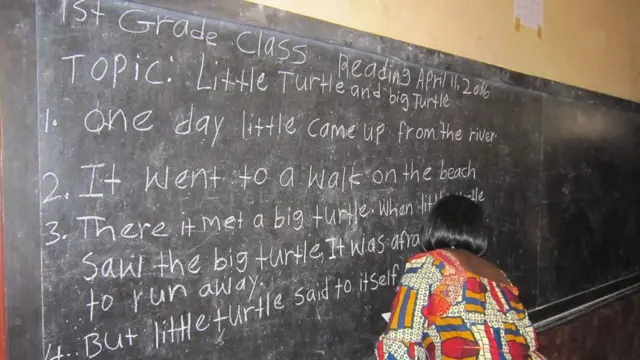 1st Grade Class Reading April 11, 2016
Topic: Little Turtle and big Turtle
1. One day little came up from the river
2. It went to a walk on the beach
3. There it met a big turtle. When little
saw the big turtle, It was
to run away.
4. But little turtle said to itself